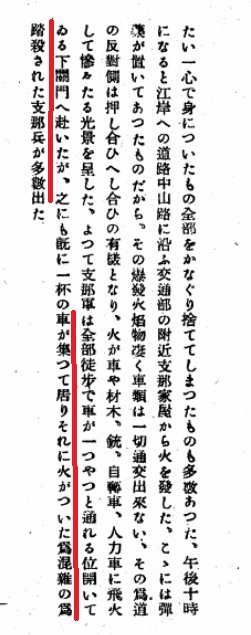 たい一心で身についたもの全部をかなぐり捨ててしまつたものも多數あつた、午後十時
になると江岸への道路中山路に沿ふ交通部の附近支那家屋から火を發した、こゝには彈
藥が置いてあつたものだから。その爆發火焰物凄く車類は一切通交出來ない、その爲道
の反對側は押し合ひへし合ひの有樣となり、火が車や材木、銃、自轉車、人力車に飛火
して慘々たる光景を呈した、よつて支那軍は全部徒步で車が一つやつと通れる位開いて
ゐる下關門へ赴いたが、之にも既に一杯の車が集つて居りそれに火がついた爲混雜の爲
踏殺された支那兵が多數出た